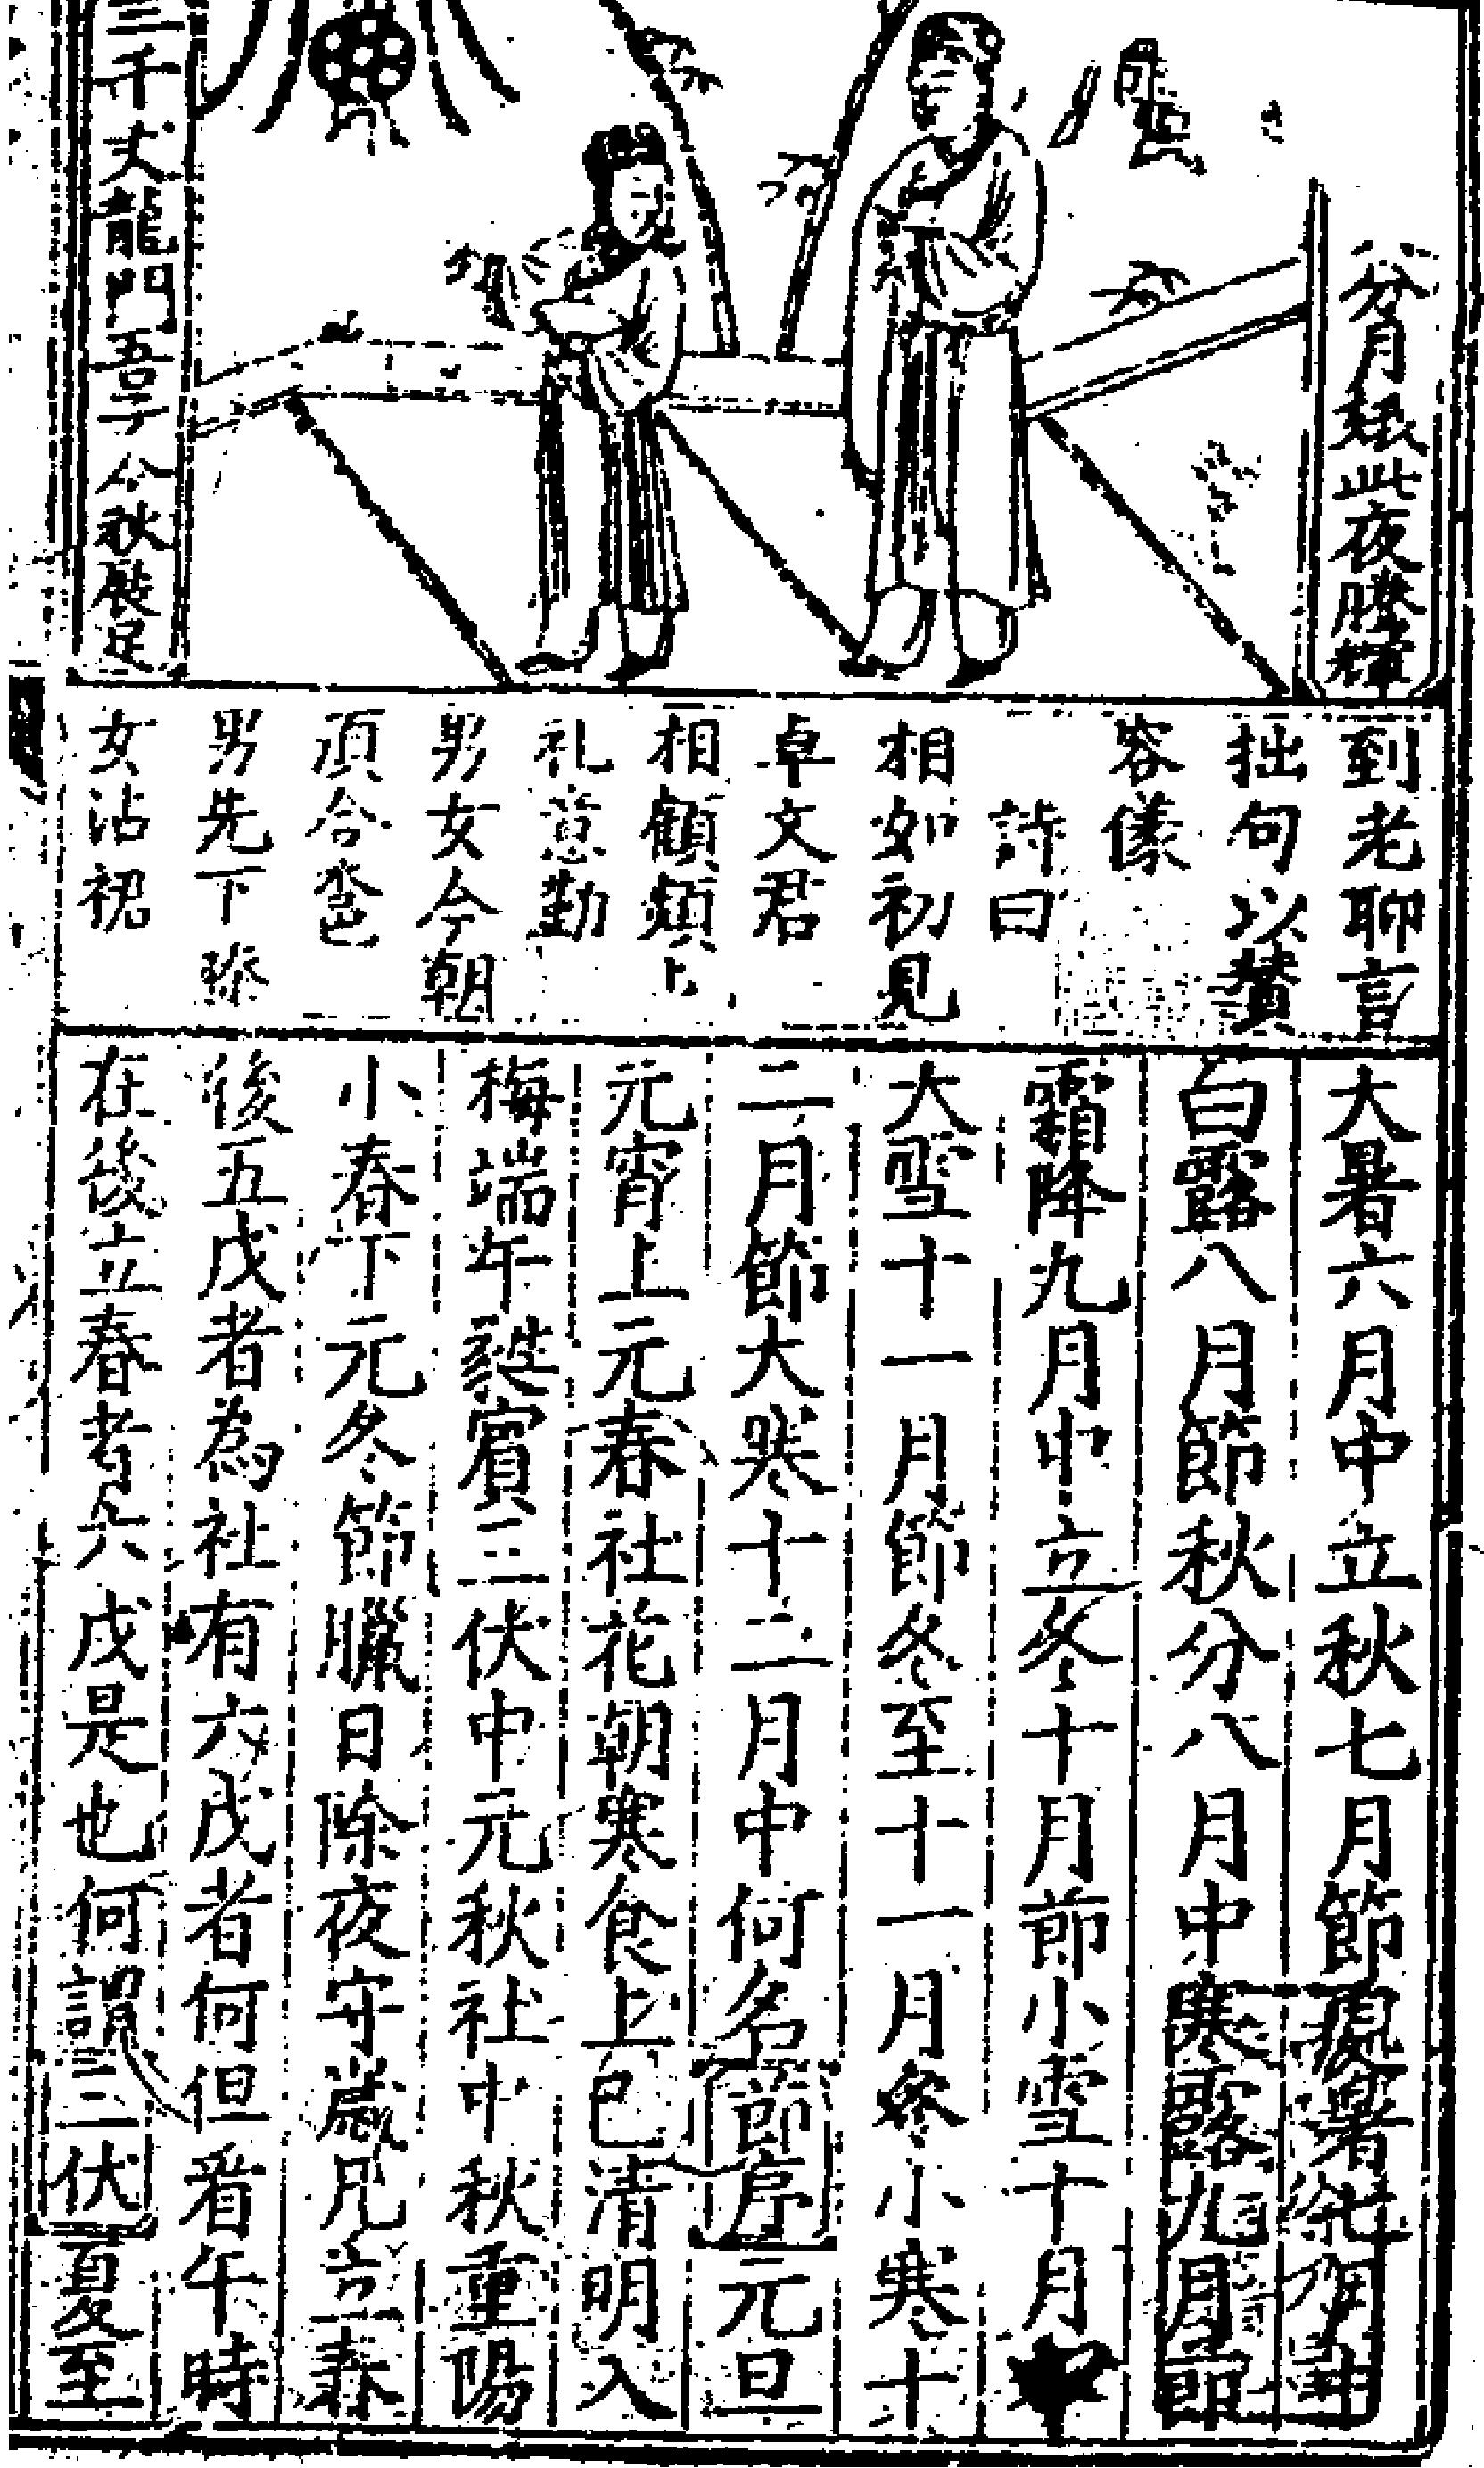 分月殿此夜騰輝
三千丈龍門吾子今秋展足
到老聊言
拙句以贊
容儀
詩曰
相如初見
卓文君
相顧頻上
礼意勤
男女今朝
須合卺
男先下
女沾裙
大暑六月中立秋七月節處暑七月中
白露八月節秋分八月中寒露九月節
霜降九月中立冬十月節小雪十月中
大雪十一月節冬至十一月終小寒十
二月節大寒十二月中何名節序元旦
元宵上元春社花朝寒食上巳清明入
梅端午蕤賓三伏中元秋社中秋重陽
小春下元冬節臘日除夜守歲凡立春
後五戊者為社有六戊者何但看午時
在後立春者六戊是也何謂三伏夏至